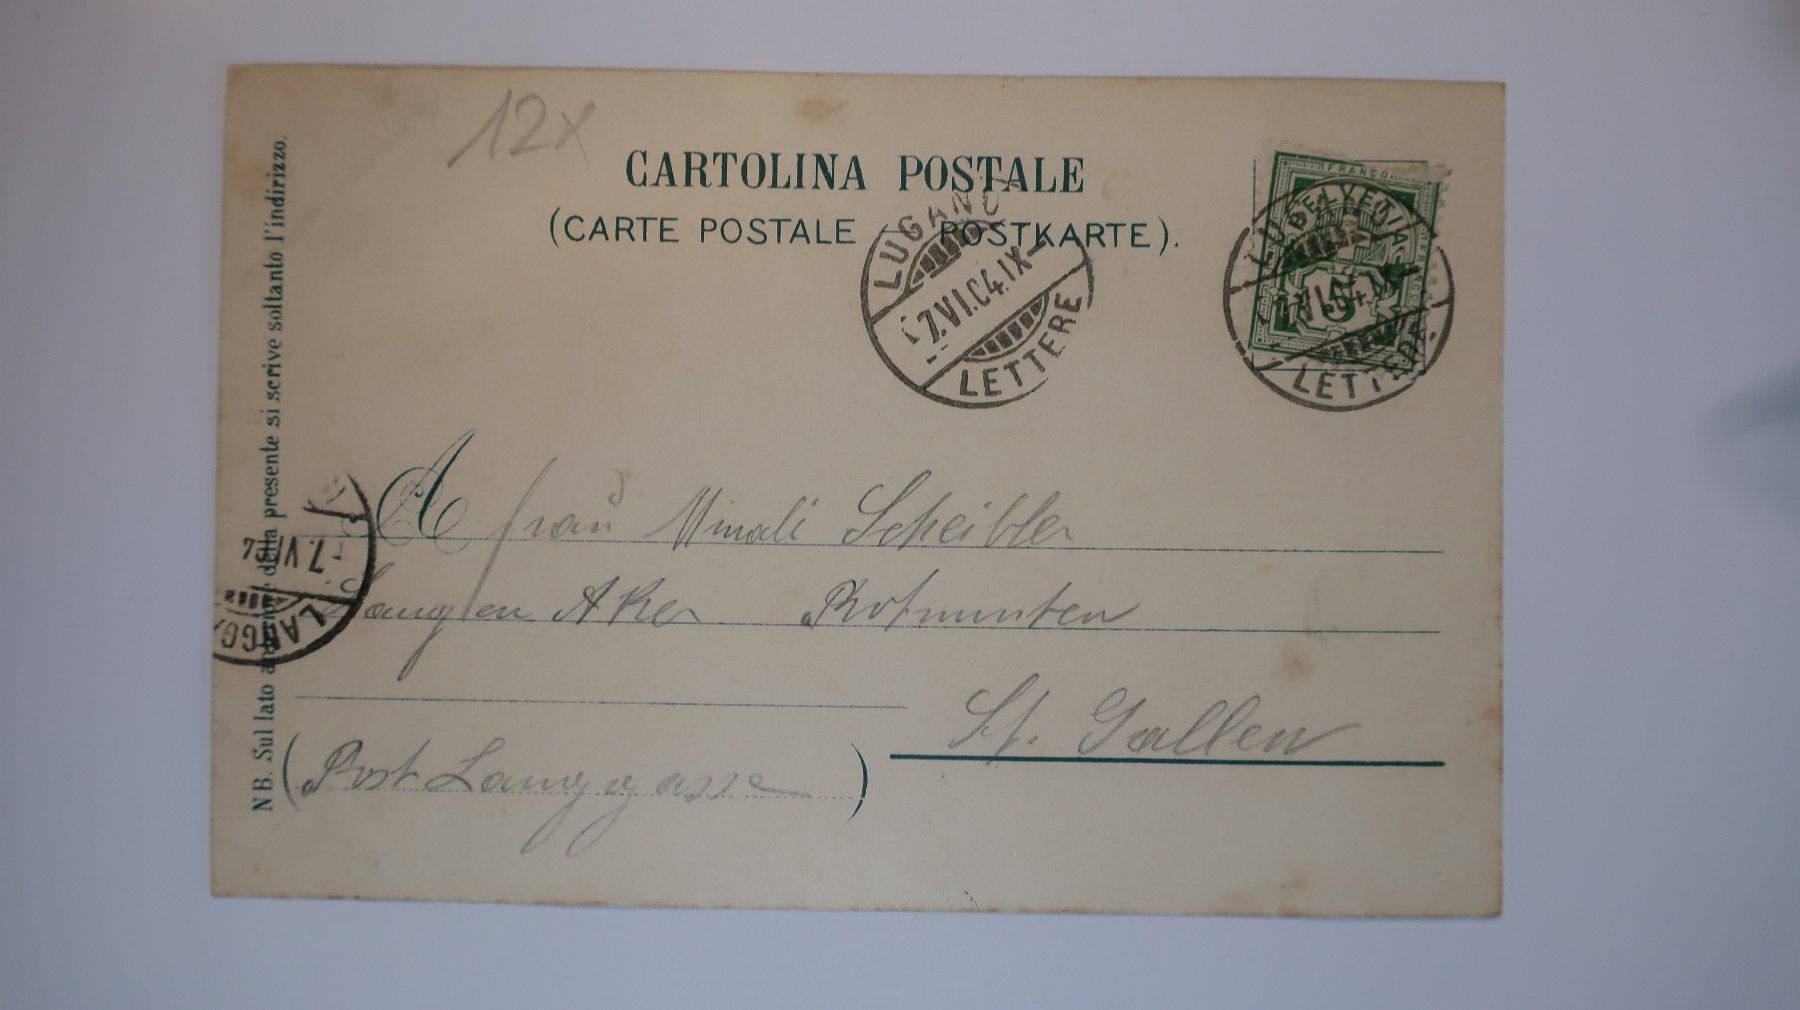 12x
CARTOLINA POSTALE
(CARTE POSTALE — POSTKARTE).
FRANCO
HELVETIA
5
LUGANO
7.VI.04.IX
LETTERE
LUGANO
7.VI.04.IX
LETTERE
NB. Sul lato anteriore della presente si scrive soltanto l'indirizzo.
7.VI.04
LANGGA
A Frau Scheibler
Langen Aker Rotmunten
St. Gallen
(Post Langgasse)